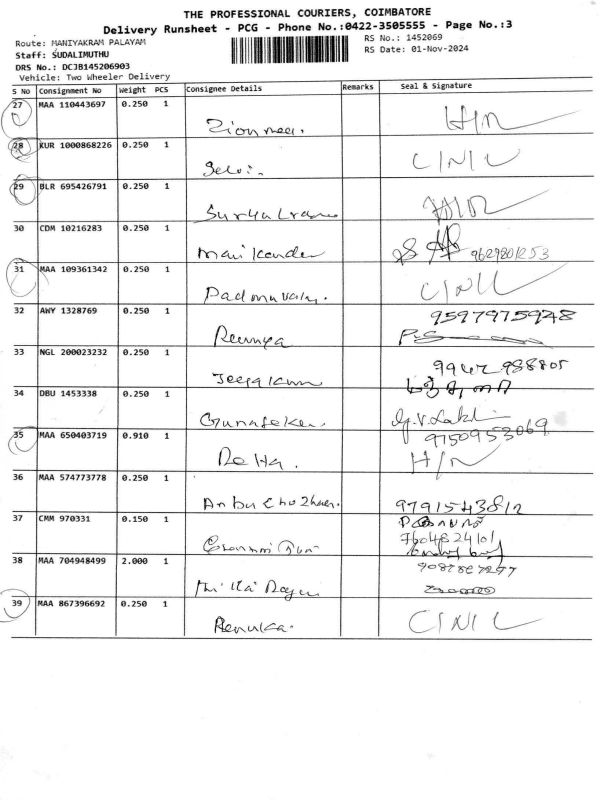 THE PROFESSIONAL COURIERS, COIMBATORE
Delivery Runsheet - PCG - Phone No.:0422-3505555 - Page No.:3
Route: MANIYAKRAM PALAYAM
RS No.: 1452069
Staff: SUDALIMUTHU
RS Date: 01-Nov-2024
DRS No.: DCJB145206903
Vehicle: Two Wheeler Delivery
S No Consignment No Weight PCS Consignee Details Remarks Seal & Signature
27 MAA 110443697 0.250 1
H/N
28 KUR 1000868226 0.250 1
Selvi. C/N/L
29 BLR 695426791 0.250 1
30 CDM 10216283 0.250 1
Mani Kandan 9629801253
31 MAA 109361342 0.250 1
Padmavathy. C/N/L
32 AWY 1328769 0.250 1
9597975948
Ramya
33 NGL 200023232 0.250 1
Jeeja 
34 DBU 1453338 0.250 1
Gunaseker. G.V.Lakh
9750953069
35 MAA 650403719 0.910 1
H/N
36 MAA 574773778 0.250 1
Anbu Chezhian. 9791543812
37 CMM 970331 0.150 1
7604824101
38 MAA 704948499 2.000 1
39 MAA 867396692 0.250 1
Renuka. C/N/L